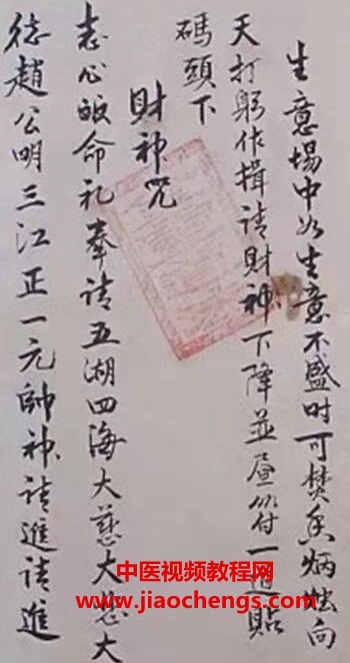 生意場中如生意不盛时可焚香炳烛向
天打躬作揖请財神下降並畫符一道貼
碼頭下
財神咒
志心皈命礼奉请五湖四海大慈大悲大
德趙公明三江正一元帥神请進请進
中医视频教程网
www.jiaochengs.com